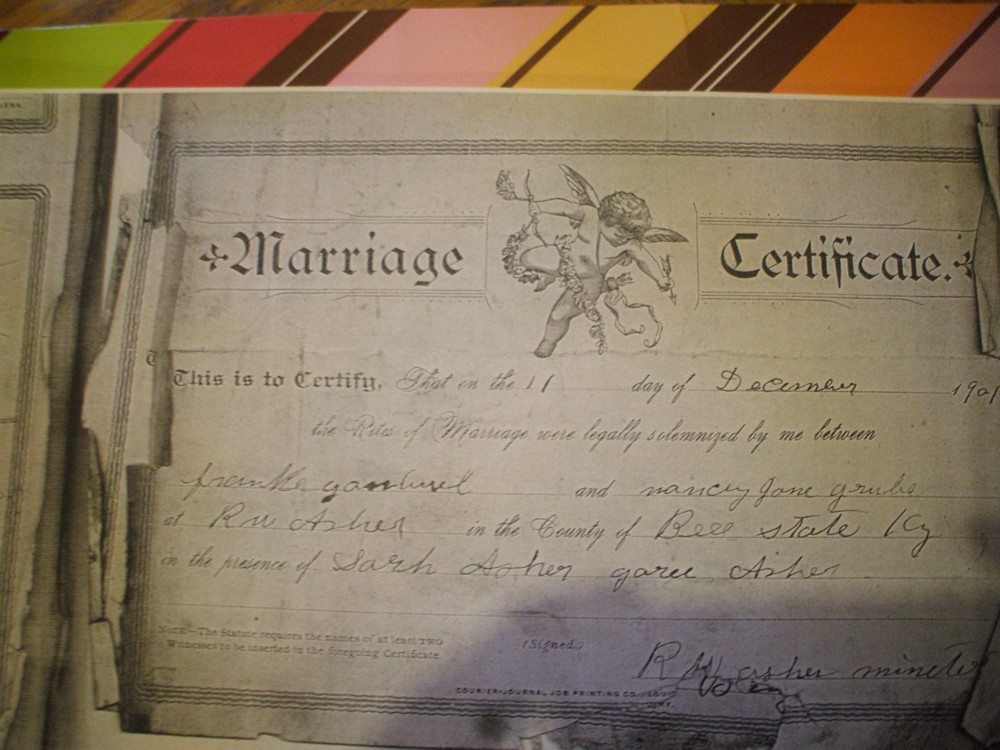 Marriage Certificate.
This is to Certify, That on the 11 day of December 190
the Rites of Marriage were legally solemnized by me between
frank and nancy Jane grubs
at R W Asher in the County of Bell state Ky
in the presence of Sarh Asher Asher
NOTE—The Statute requires the names of at least TWO
Witnesses to be inserted in the foregoing Certificate.
(Signed.)
R W asher
COURIER-JOURNAL JOB PRINTING CO.